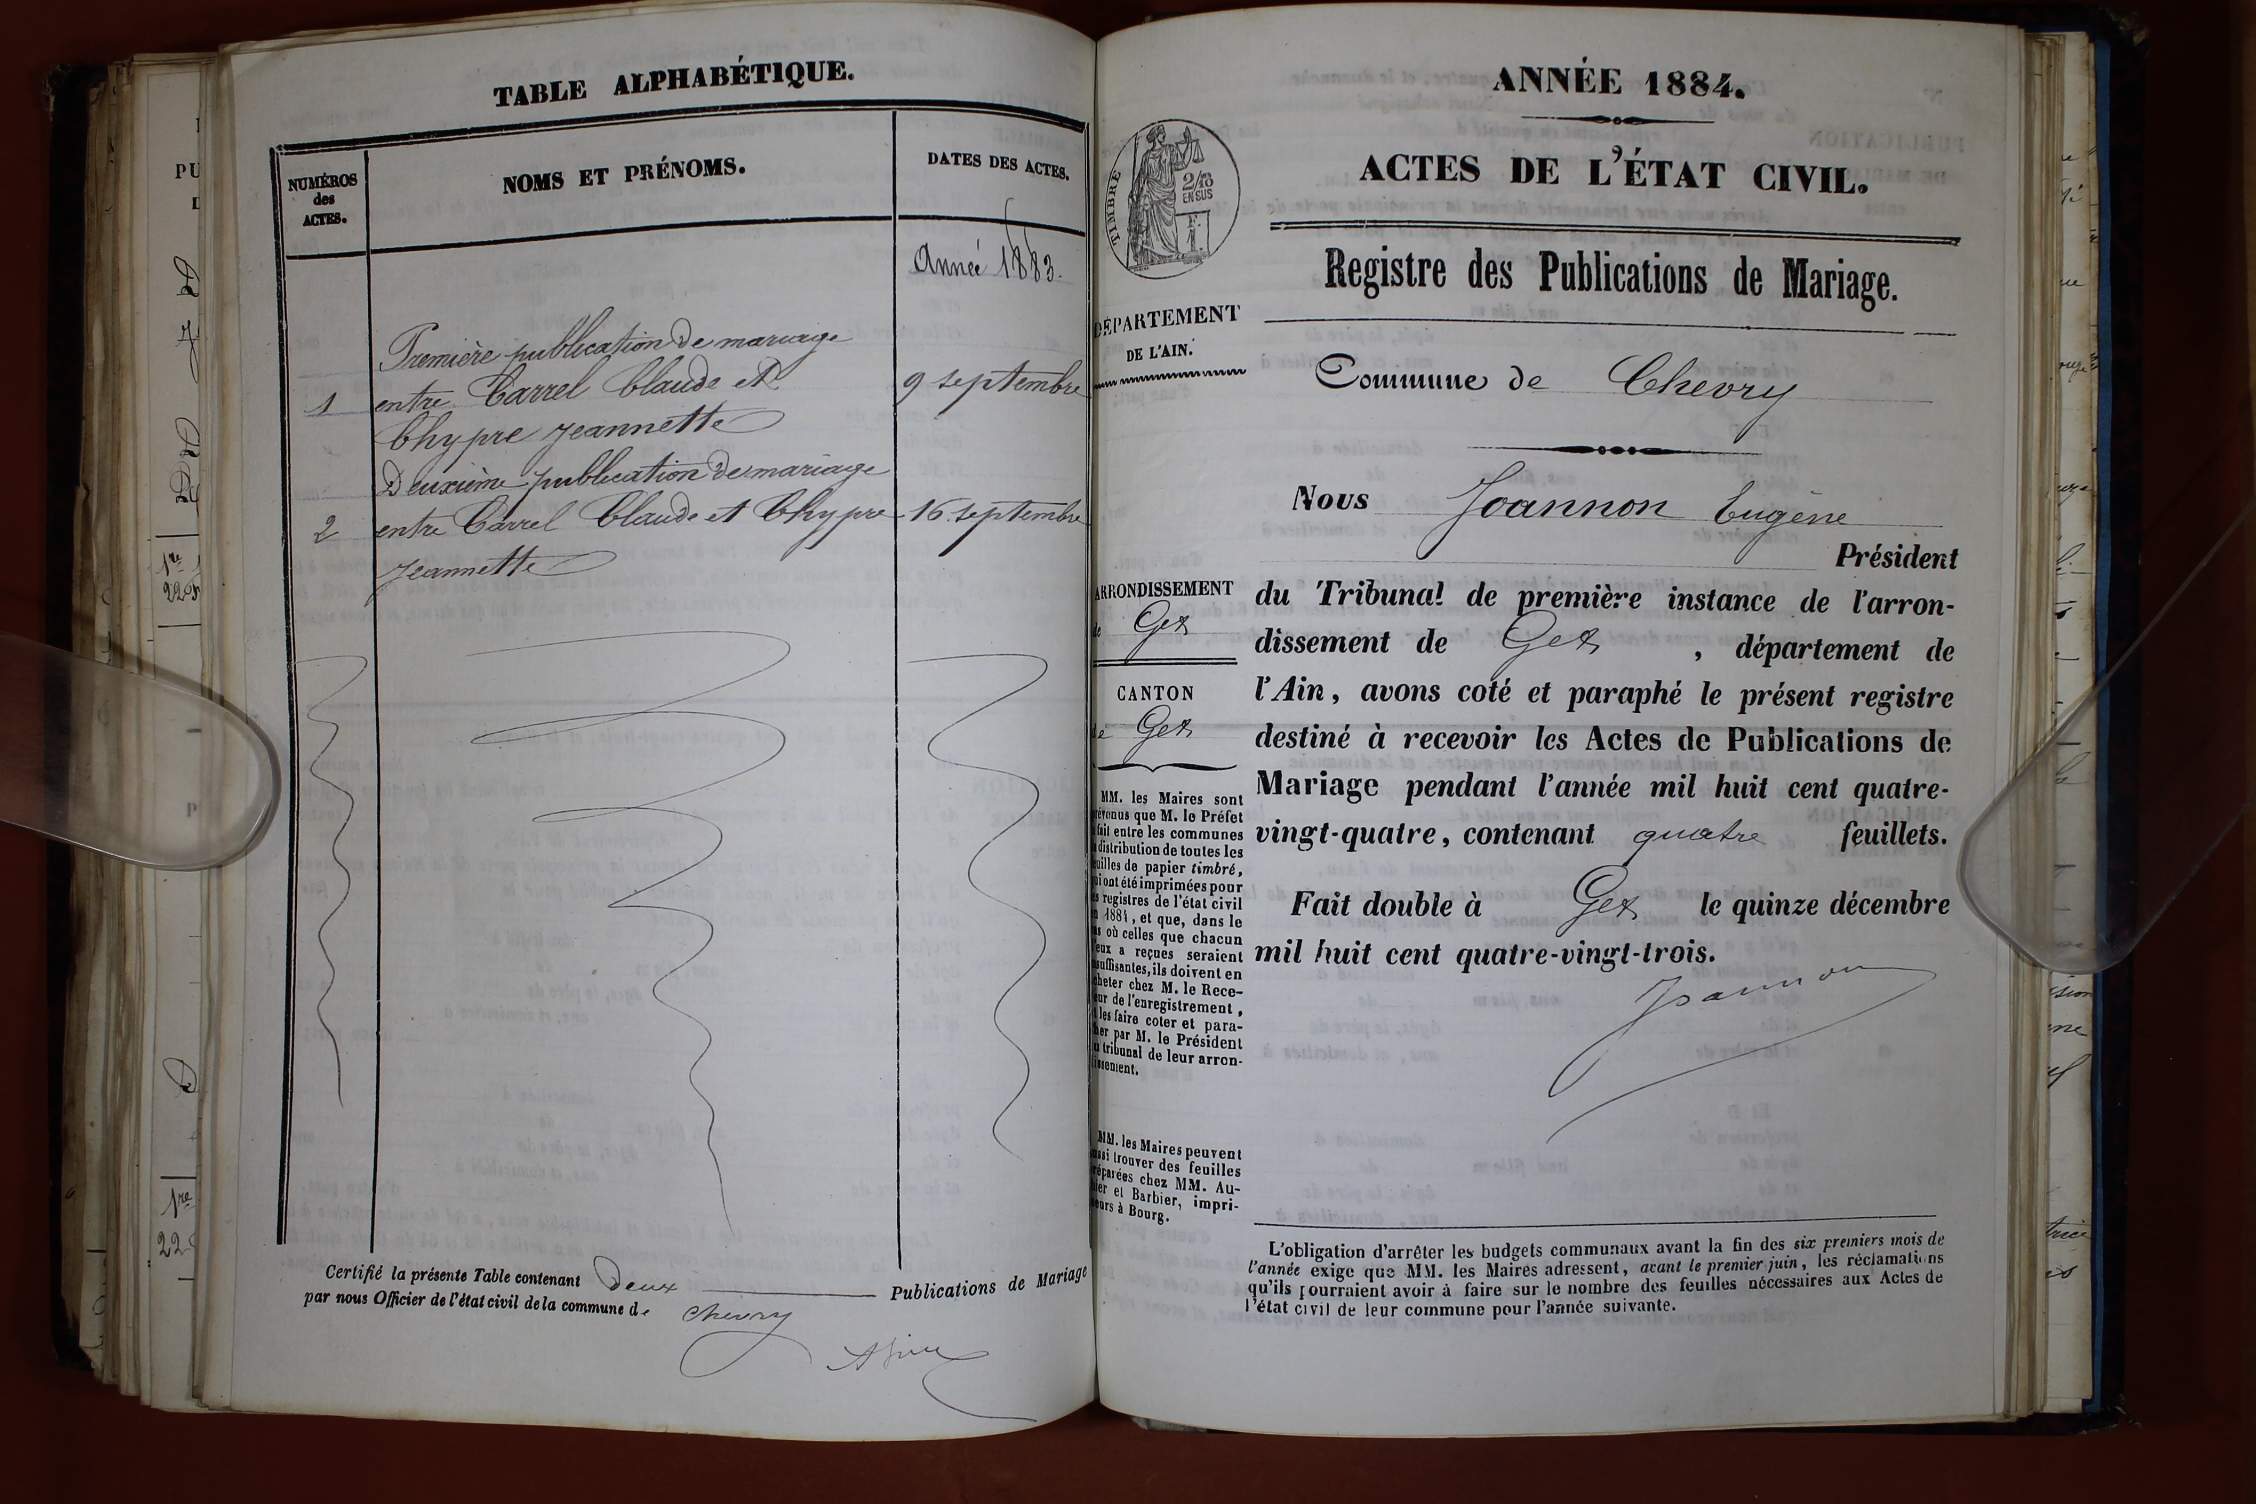 TABLE ALPHABÉTIQUE.
NUMÉROS
des
ACTES.
NOMS ET PRÉNOMS.
DATES DES ACTES.
Année 1883.
Première publication de mariage
1 entre Carrel Claude et 9 septembre
Chypre Jeannette
Deuxième publication de mariage
2 entre Carrel Claude et Chypre 16 septembre
Jeannette
Certifié la présente Table contenant Deux Publications de Mariage
par nous Officier de l'état civil de la commune de Chevry
ANNÉE 1884.
ACTES DE L'ÉTAT CIVIL.
TIMBRE
2/10
EN SUS
Registre des Publications de Mariage.
DÉPARTEMENT
DE L'AIN.
Commune de Chevry
Nous Joannon Eugène
Président
du Tribunal de première instance de l'arron-
dissement de Gex, département de
l'Ain, avons coté et paraphé le présent registre
destiné à recevoir les Actes de Publications de
Mariage pendant l'année mil huit cent quatre-
vingt-quatre, contenant quatre feuillets.
Fait double à Gex le quinze décembre
mil huit cent quatre-vingt-trois.
Joannon
ARRONDISSEMENT
de Gex
CANTON
de Gex
MM. les Maires sont
prévenus que M. le Préfet
a fait entre les communes
la distribution de toutes les
feuilles de papier timbré,
qui ont été imprimées pour
les registres de l'état civil
en 1884, et que, dans le
cas où celles que chacun
d'eux a reçues seraient
insuffisantes, ils doivent en
acheter chez M. le Rece-
veur de l'enregistrement,
et les faire coter et para-
pher par M. le Président
du tribunal de leur arron-
dissement.
MM. les Maires peuvent
aussi trouver des feuilles
préparées chez MM. Au-
thier et Barbier, impri-
meurs à Bourg.
L'obligation d'arrêter les budgets communaux avant la fin des six premiers mois de
l'année exige que MM. les Maires adressent, avant le premier juin, les réclamations
qu'ils pourraient avoir à faire sur le nombre des feuilles nécessaires aux Actes de
l'état civil de leur commune pour l'année suivante.